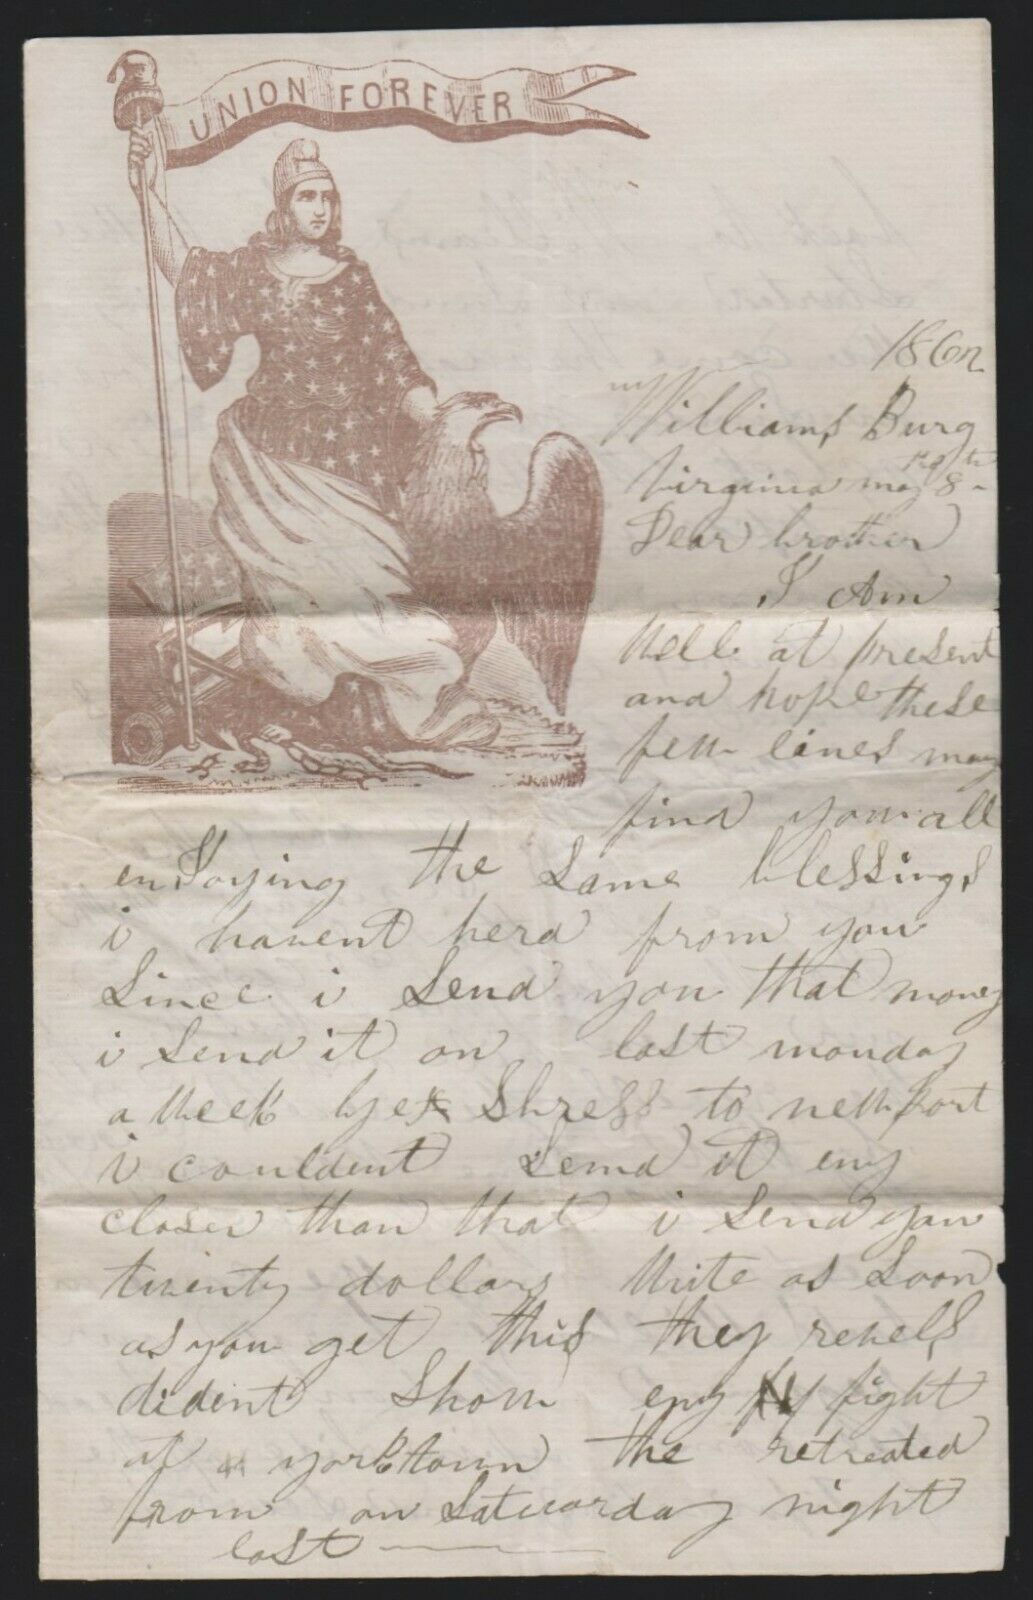 UNION FOREVER
1862
Williams Burg
Virginia may 8th
Dear brother
I Am
Well at present
and hope these
few lines may
find you all
enJoying the Same blessings
i havent herd from you
Since i Send you that money
i Send it on last monday
a Week by ex Shress to newport
i couldent Send it eny
closer than that i Send you
twenty dollars Write as Soon
as you get this they rebels
dident Show eny fight
at yorktown the retreated
from on Satuarday night
last